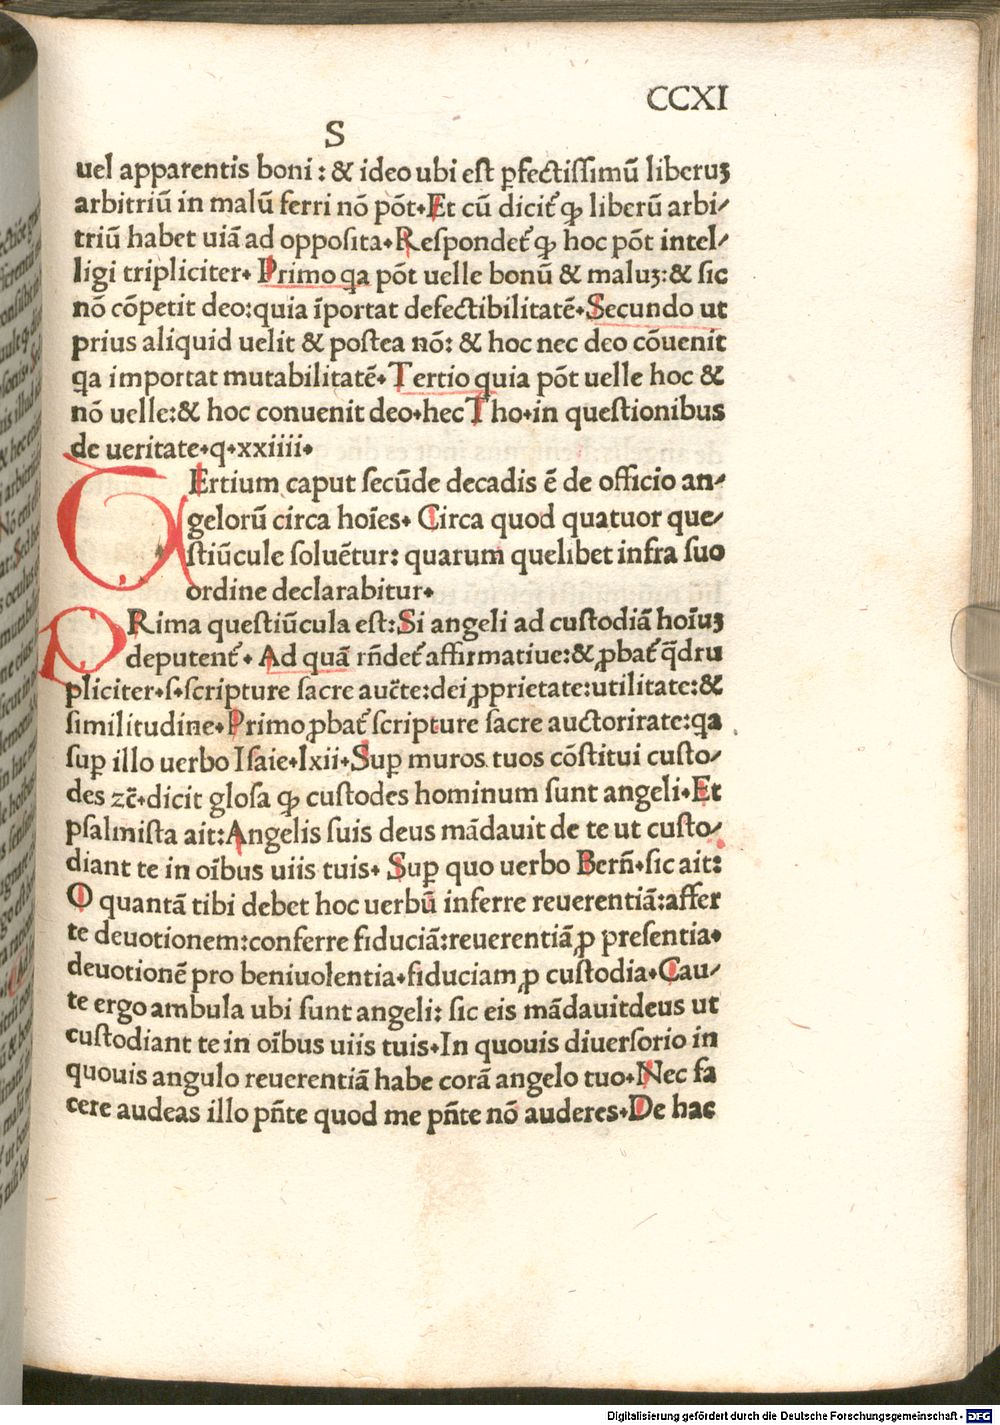 CCXI
S
uel apparentis boni : & ideo ubi est ꝑfectissimū liberuꝫ
arbitriū in malū ferri nō pōt. Et cū dicit᷑ ꝙ liberū arbi-
triū habet uiā ad opposita. Respondet᷑ ꝙ hoc pōt intel-
ligi tripliciter. Primo qa pōt uelle bonū & maluꝫ: & sic
nō cōpetit deo: quia īportat defectibilitatē. Secundo ut
prius aliquid uelit & postea nō: & hoc nec deo cōuenit
qa importat mutabilitatē. Tertio quia pōt uelle hoc &
nō uelle: & hoc conuenit deo. hec Tho. in questionibus
de ueritate. q. xxiiii.
TErtium caput secūde decadis ē de officio an-
gelorū circa hoīes. Circa quod quatuor que-
stiūcule soluētur: quarum quelibet infra suo
ordine declarabitur.
PRima questiūcula est: Si angeli ad custodiā hoīuꝫ
deputent᷑. Ad quā rn̄det᷑ affirmatiue: & ꝓbat᷑ q̄dru
pliciter. s. scripture sacre auc̄te: dei ꝓprietate: utilitate: &
similitudine. Primo ꝓbat᷑ scripture sacre auctorirate: qa
suꝑ illo uerbo Isaie. lxii. Suꝑ muros tuos cōstitui custo-
des zc̄. dicit glosa ꝙ custodes hominum sunt angeli. Et
psalmista ait: Angelis suis deus mādauit de te ut custo-
diant te in oībus uiis tuis. Suꝑ quo uerbo Bern̄. sic ait:
O quantā tibi debet hoc uerbū inferre reuerentiā: affer
te deuotionem: conferre fiduciā: reuerentiā ꝓ presentia.
deuotionē pro beniuolentia. fiduciam ꝓ custodia. Cau-
te ergo ambula ubi sunt angeli: sic eis mādauitdeus ut
custodiant te in oībus uiis tuis. In quouis diuersorio in
quouis angulo reuerentiā habe corā angelo tuo. Nec fa
cere audeas illo pn̄te quod me pn̄te nō auderes. De hac
Digitalisierung gefördert durch die Deutsche Forschungsgemeinschaft - DFG